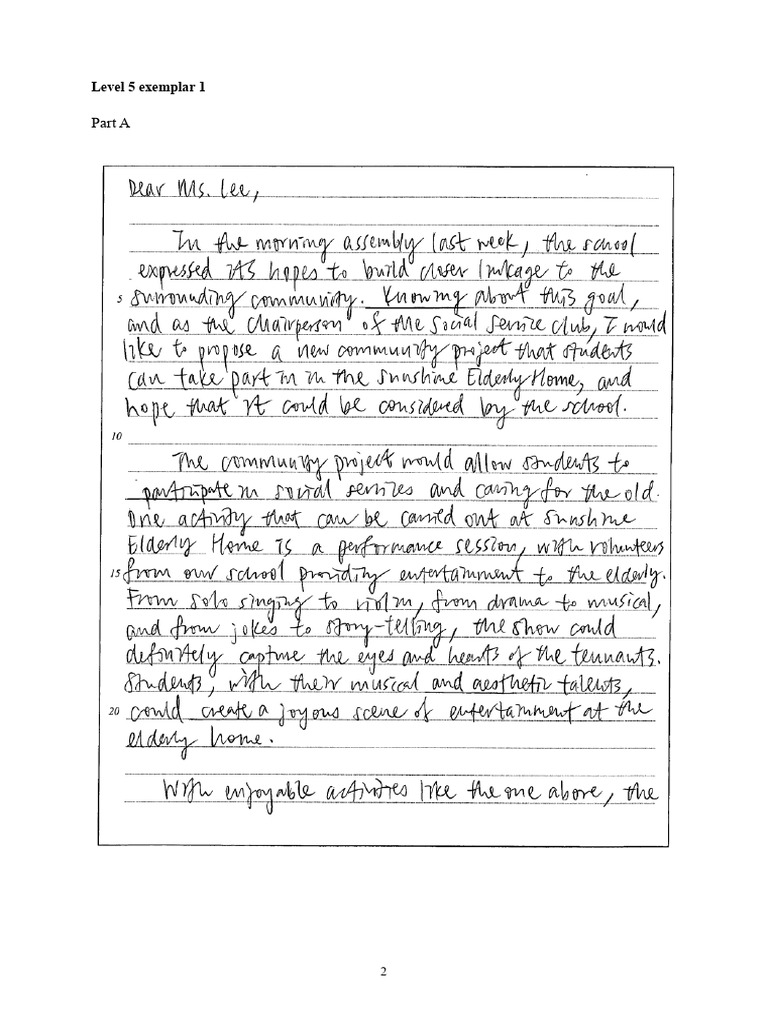 Level 5 exemplar 1
Part A
Dear Ms. Lee,
In the morning assembly last week, the school
expressed its hopes to build closer linkage to the
5 surrounding community. Knowing about this goal,
and as the Chairperson of the Social Service Club, I would
like to propose a new community project that students
can take part in in the Sunshine Elderly Home, and
hope that it could be considered by the school.
10
The community project would allow students to
participate in social services and caring for the old.
One activity that can be carried out at Sunshine
Elderly Home is a performance session, with volunteers
15 from our school providing entertainment to the elderly.
From solo singing to violin, from drama to musical,
and from jokes to story-telling, the show could
definitely capture the eyes and hearts of the tennants.
Students, with their musical and aesthetic talents,
20 could create a joyous scene of entertainment at the
elderly home.
With enjoyable activities like the one above, the
2